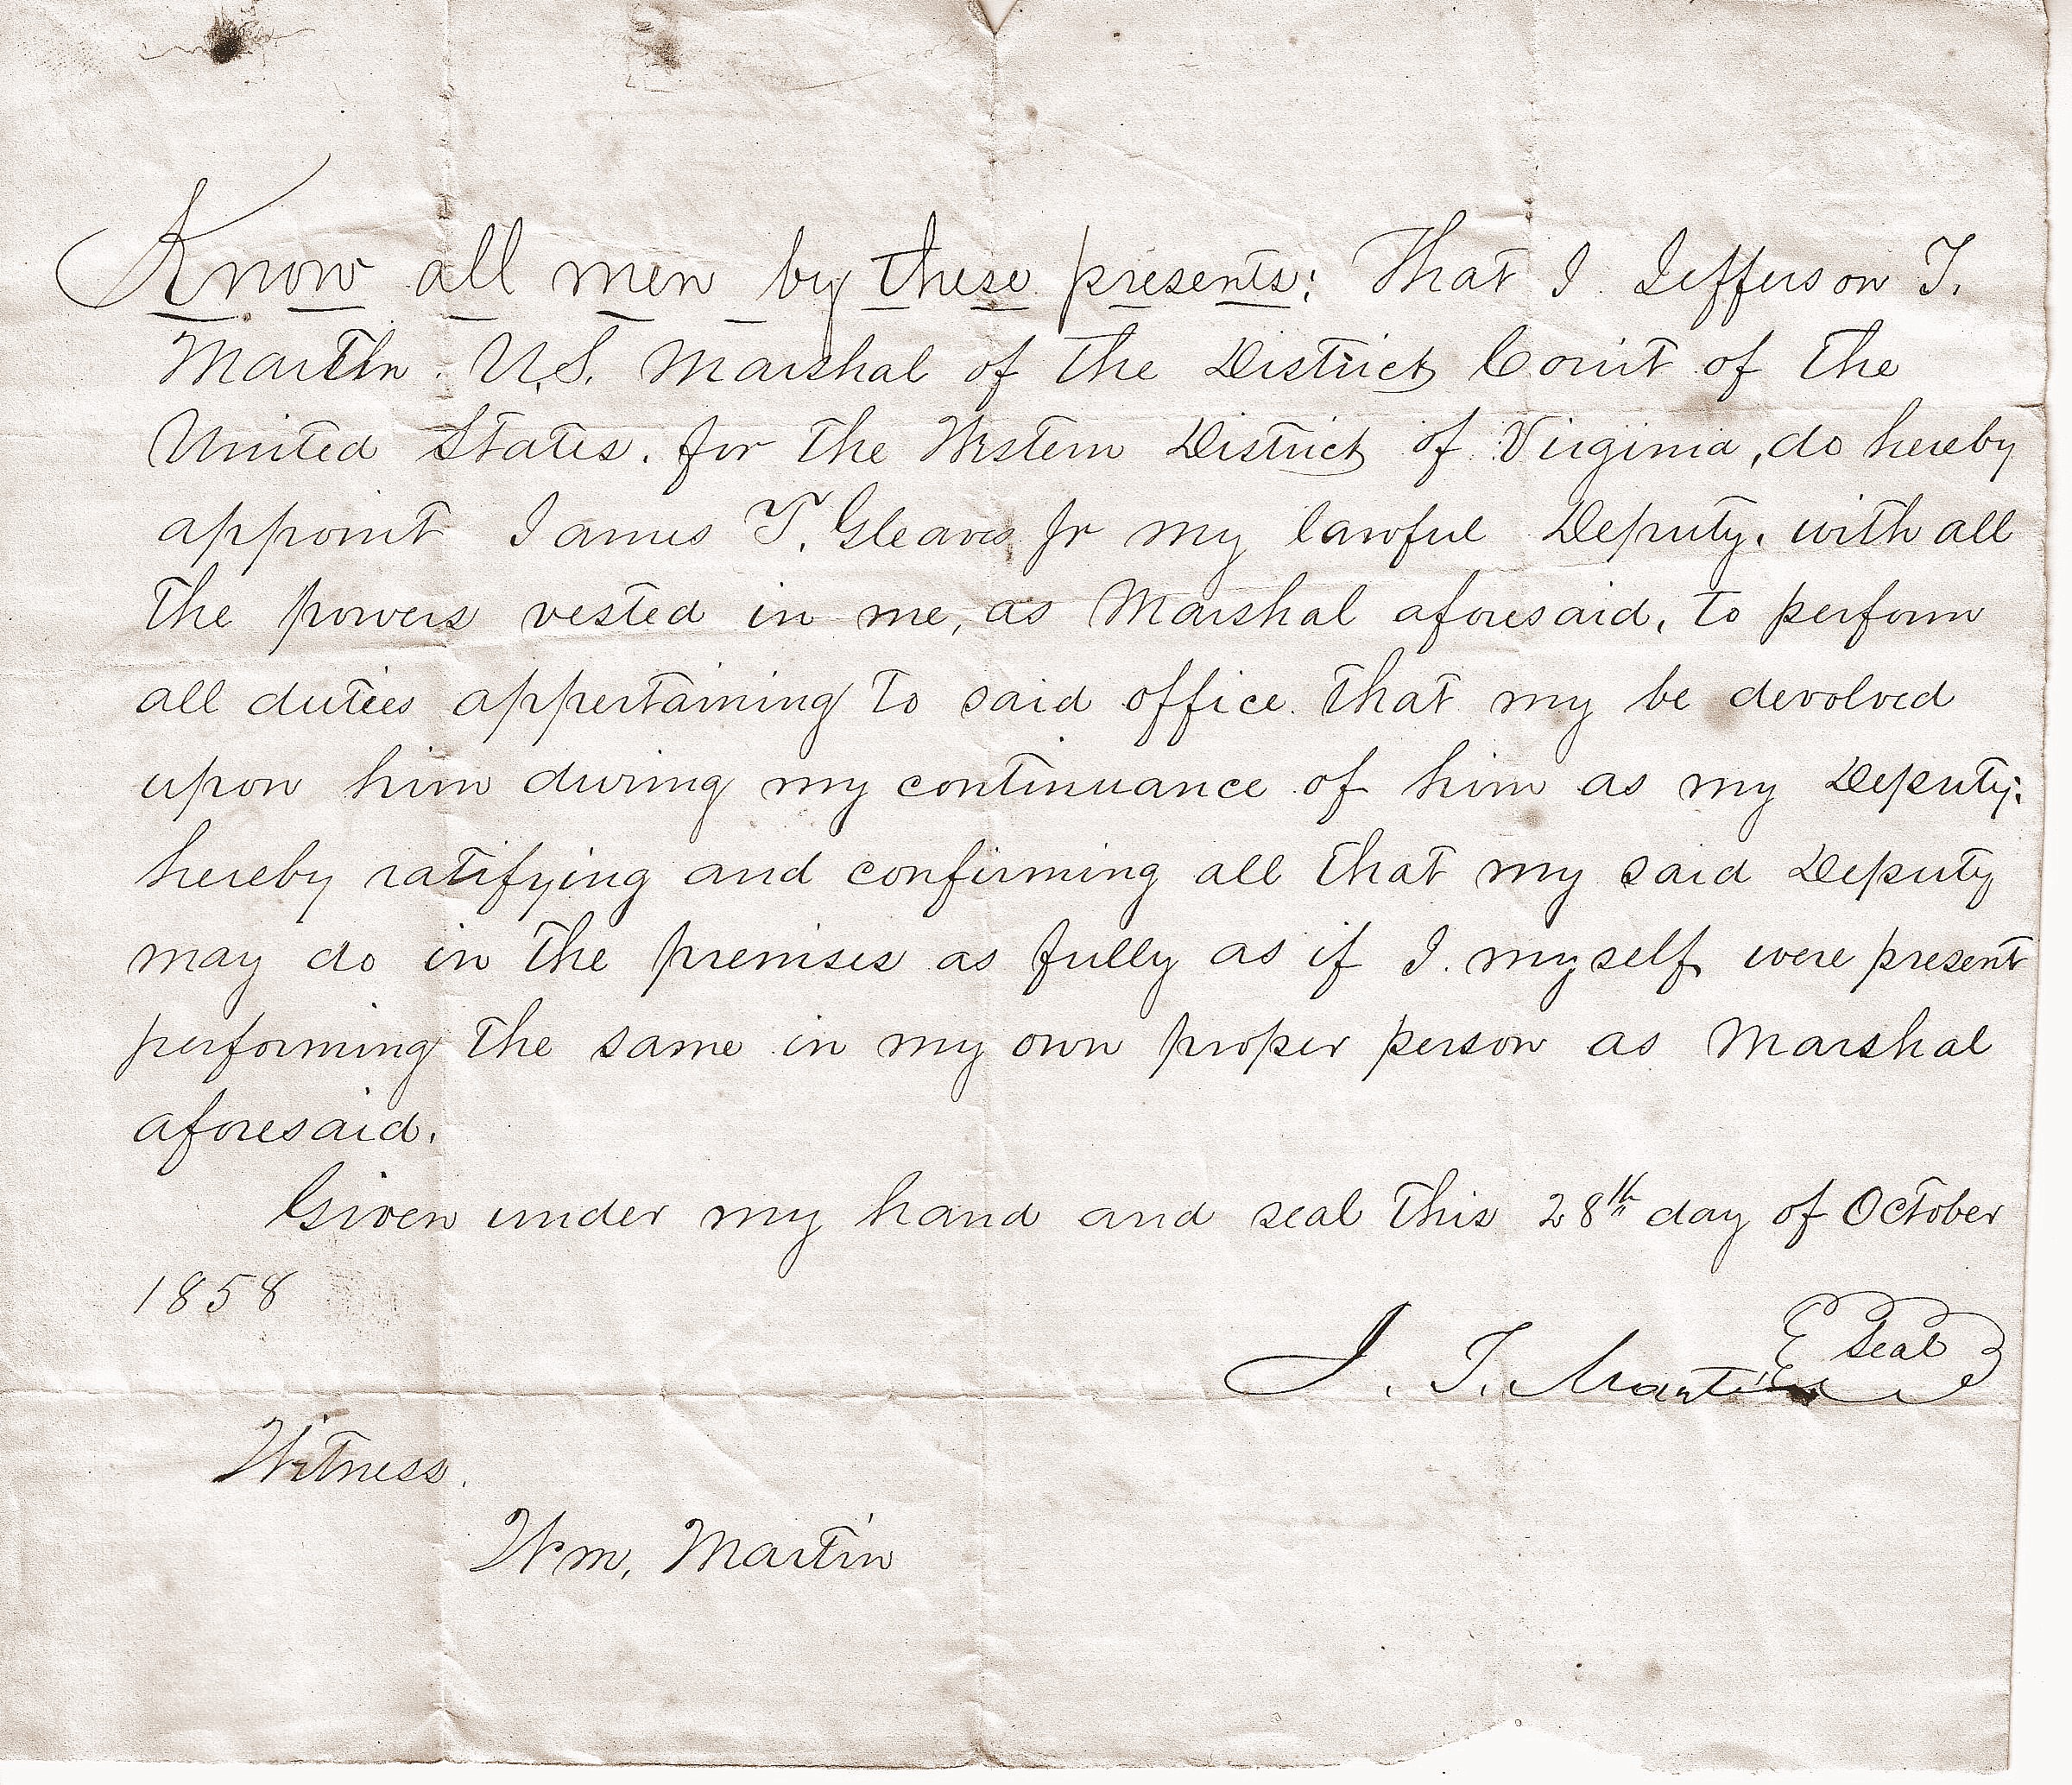 Know all men by these presents: That I Jefferson T.
Martin. U.S. Marshal of the District Court of the
United States. for the Western District of Virginia, do hereby
appoint James T. Gleaves Jr my lawful Deputy. with all
the powers vested in me, as Marshal aforesaid, to perform
all duties appertaining to said office that my be devolved
upon him during my continuance of him as my Deputy:
hereby ratifying and confirming all that my said Deputy
may do in the premises as fully as if I. myself were present
performing the same in my own proper person as Marshal
aforesaid.
Given under my hand and seal this 28th day of October
1858
J. T. Martin Seal
Witness.
Wm, Martin